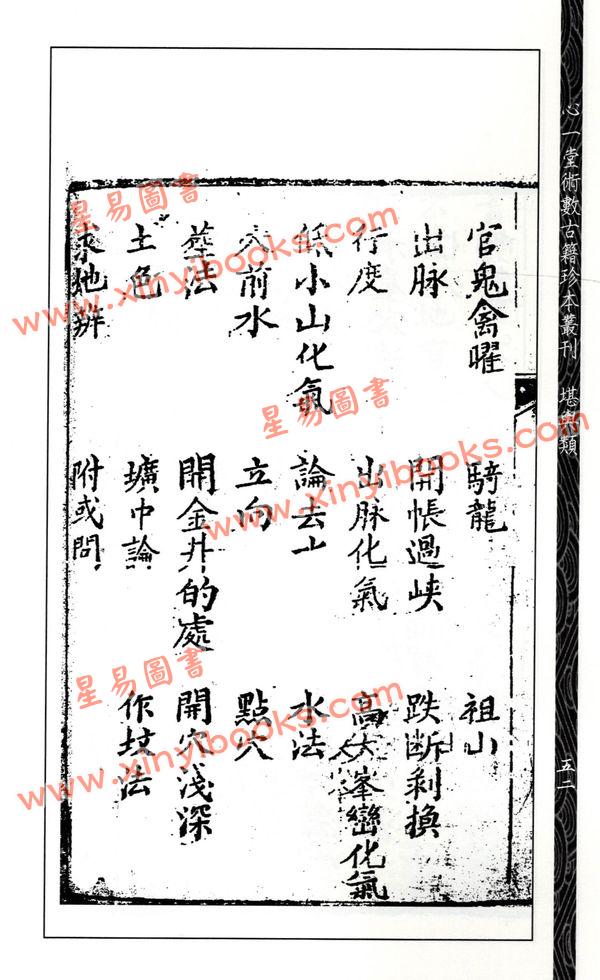 心一堂術數古籍珍本叢刊 堪輿類
五二
官鬼禽曜 騎龍 祖山
出脉 開帳過峽 跌断剝換
行度 出脉化氣 高大峯巒化氣
低小山化氣 論去 水法
穴前水 立向 點穴
葬法 開金井的處 開穴淺深
土色 壙中論 作坟法
求地辨 附或問
星易圖書
www.xinyibooks.com
星易圖書
www.xinyibooks.com
星易圖書
www.xinyibooks.com